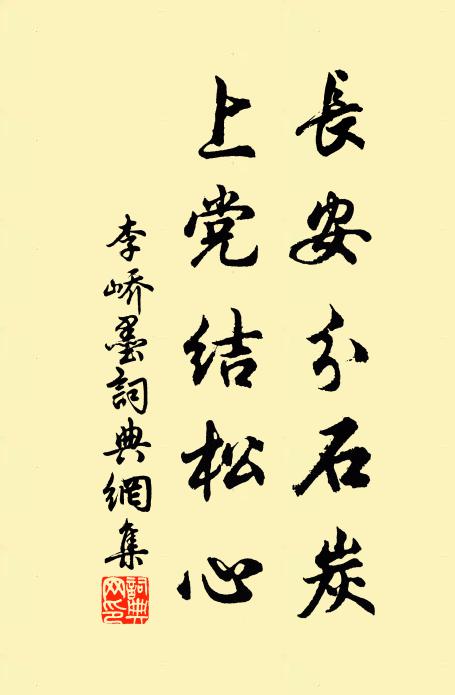 長安分石炭
上党结松心
李峤墨詞典網集
詞典网印